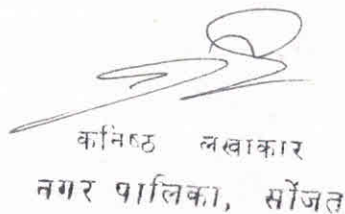 कनिष्ठ लखाकार
नगर पालिका, सोजत